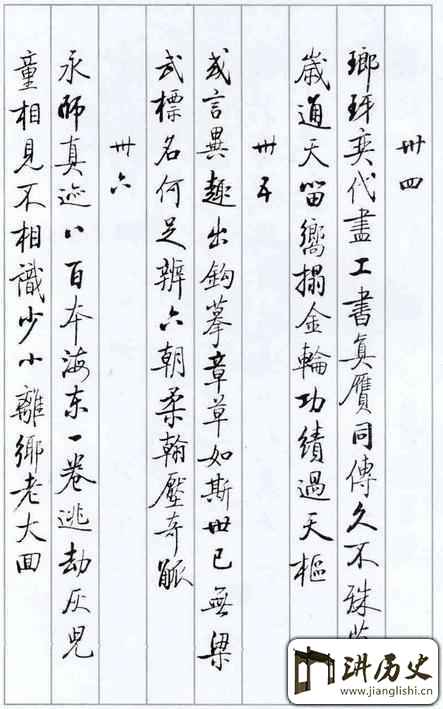 卅四
瑯玡奕代盡工書真贋同傳久不殊萬
歲通天留嚮搨金輪功績過天樞
卅五
或言異趣出鈎摹章草如斯世已無梁
武標名何足辨六朝柔翰壓奇觚
卅六
永師真迹八百本海东一卷逃劫灰兒
童相見不相識少小離鄉老大囬
讲历史
www.jianglishi.cn